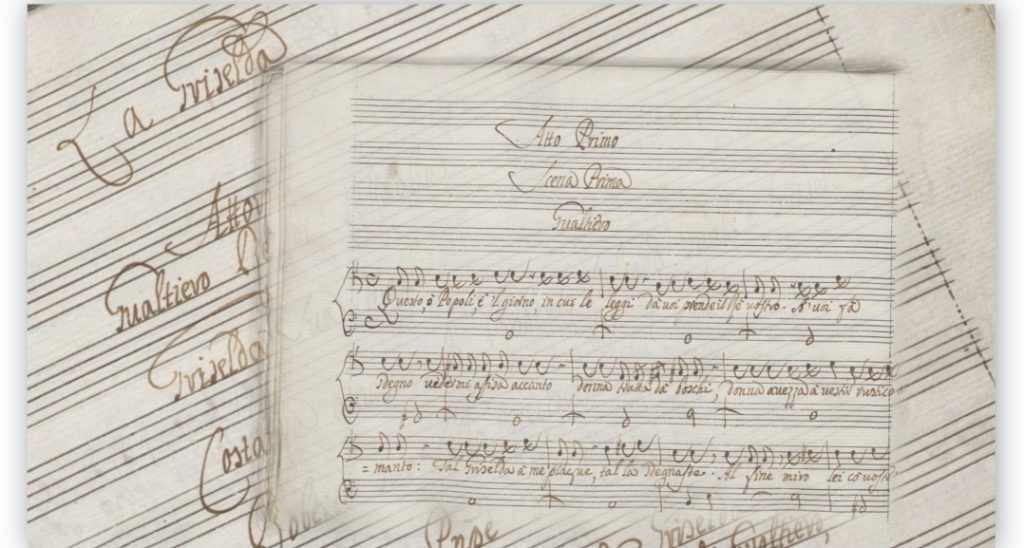 La Griselda
Atto
Gualtiero
Griselda
Costa
Atto Primo
Scena Prima
Gualtiero
Questo, ò Popoli, è il giorno, in cui le leggi da voi prende il Rè vostro. A' voi fà
sdegno vedermi assisa accanto donna nata da' boschi, donna avezza à vestir rustico
=manto: Tal Griselda à me piacque, tal la sdegnaste. Al fine miro lei co'
Gualtiero,